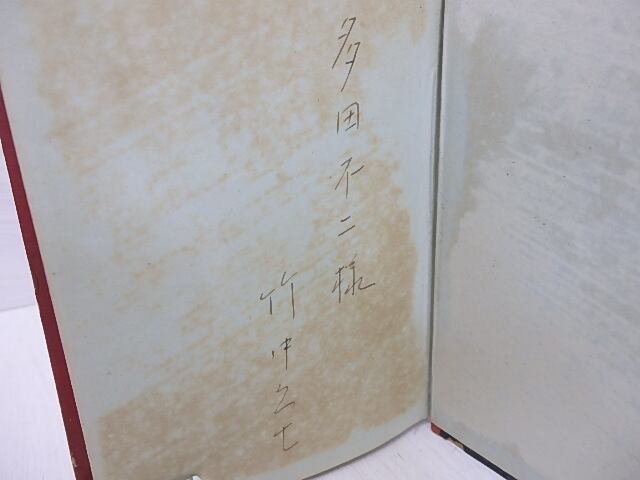 多田不二様
竹中久七